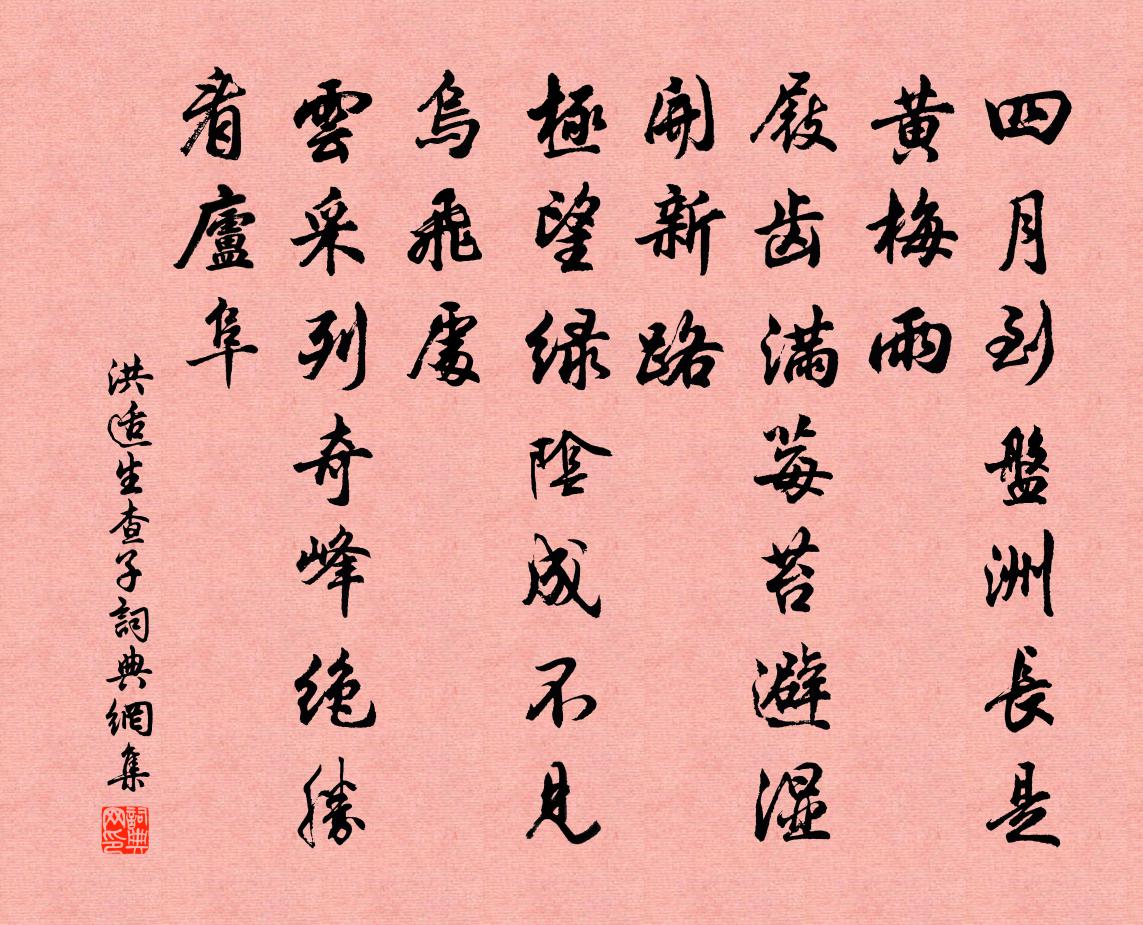 四月到盤洲長是
黄梅雨
屐齿滿莓苔避湿
開新路
極望緑陰成不見
烏飛處
雲采列奇峰絶勝
看廬阜
洪适生查子詞典網集
詞典网印